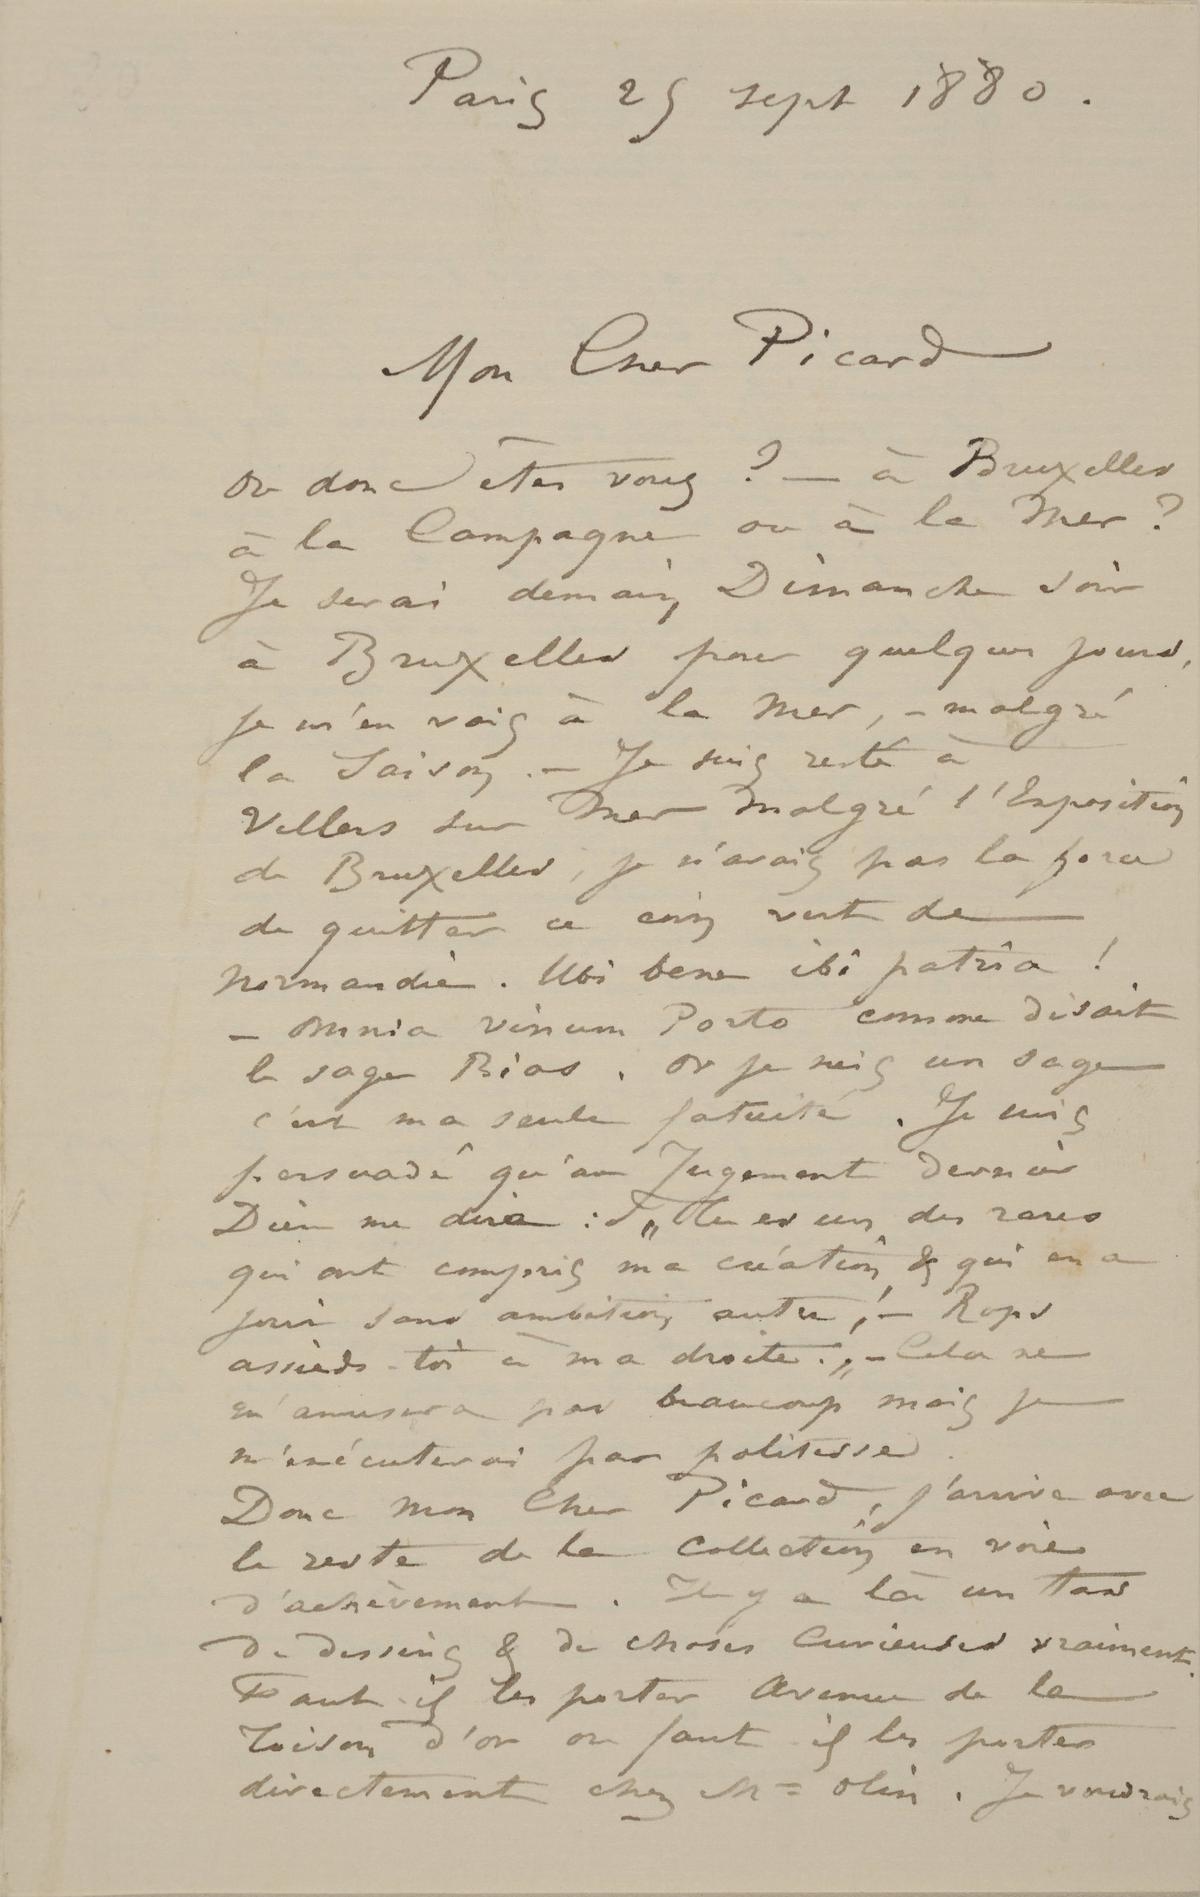 Paris 25 sept 1880.
Mon Cher Picard
Ou donc êtes vous ? — à Bruxelles
à la Campagne ou à la Mer ?
Je serai demain, Dimanche soir
à Bruxelles pour quelques jours,
je m'en vais à la Mer, – malgré
la Saison. – Je suis resté à
Villers sur Mer malgré l'Exposition
de Bruxelles, je n'avais pas la force
de quitter ce coin vert de
Normandie. Ubi bene ibi patria !
– Omnia vinum Porto comme disait
le sage Bias. Or je suis un sage
c'est ma seule fatuité. Je suis
persuadé qu'au Jugement dernier
Dieu me dira : „ Tu es un des rares
qui ont compris ma création, & qui en a
joui sans ambition autre, ! – Rops
assieds-toi à ma droite. „ – Cela ne
m'amusera pas beaucoup mais je
m'exécuterai par politesse.
Donc mon Cher Picard, j'arrive avec
le reste de la Collection en voie
d'achèvement. Il y a là un tas
de dessins & de choses Curieuses vraiment.
Faut-il les porter Avenue de la
Toison d'or ou faut-il les porter
directement chez Mr = Olin. Je voudrais